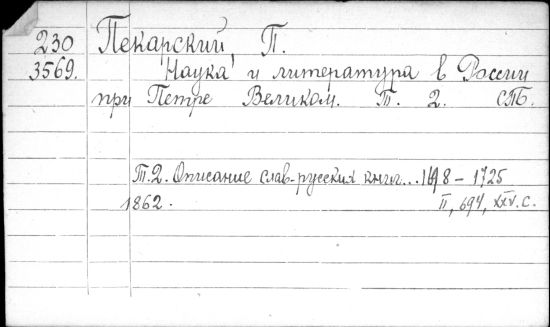 230 Пекарский П.
3569. Наука и литература в России
при Петре Великом. Т. 2. СПБ.
Т.2. Описание слав-русских книг...1698 – 1725
1862. II, 694, XXV. с.